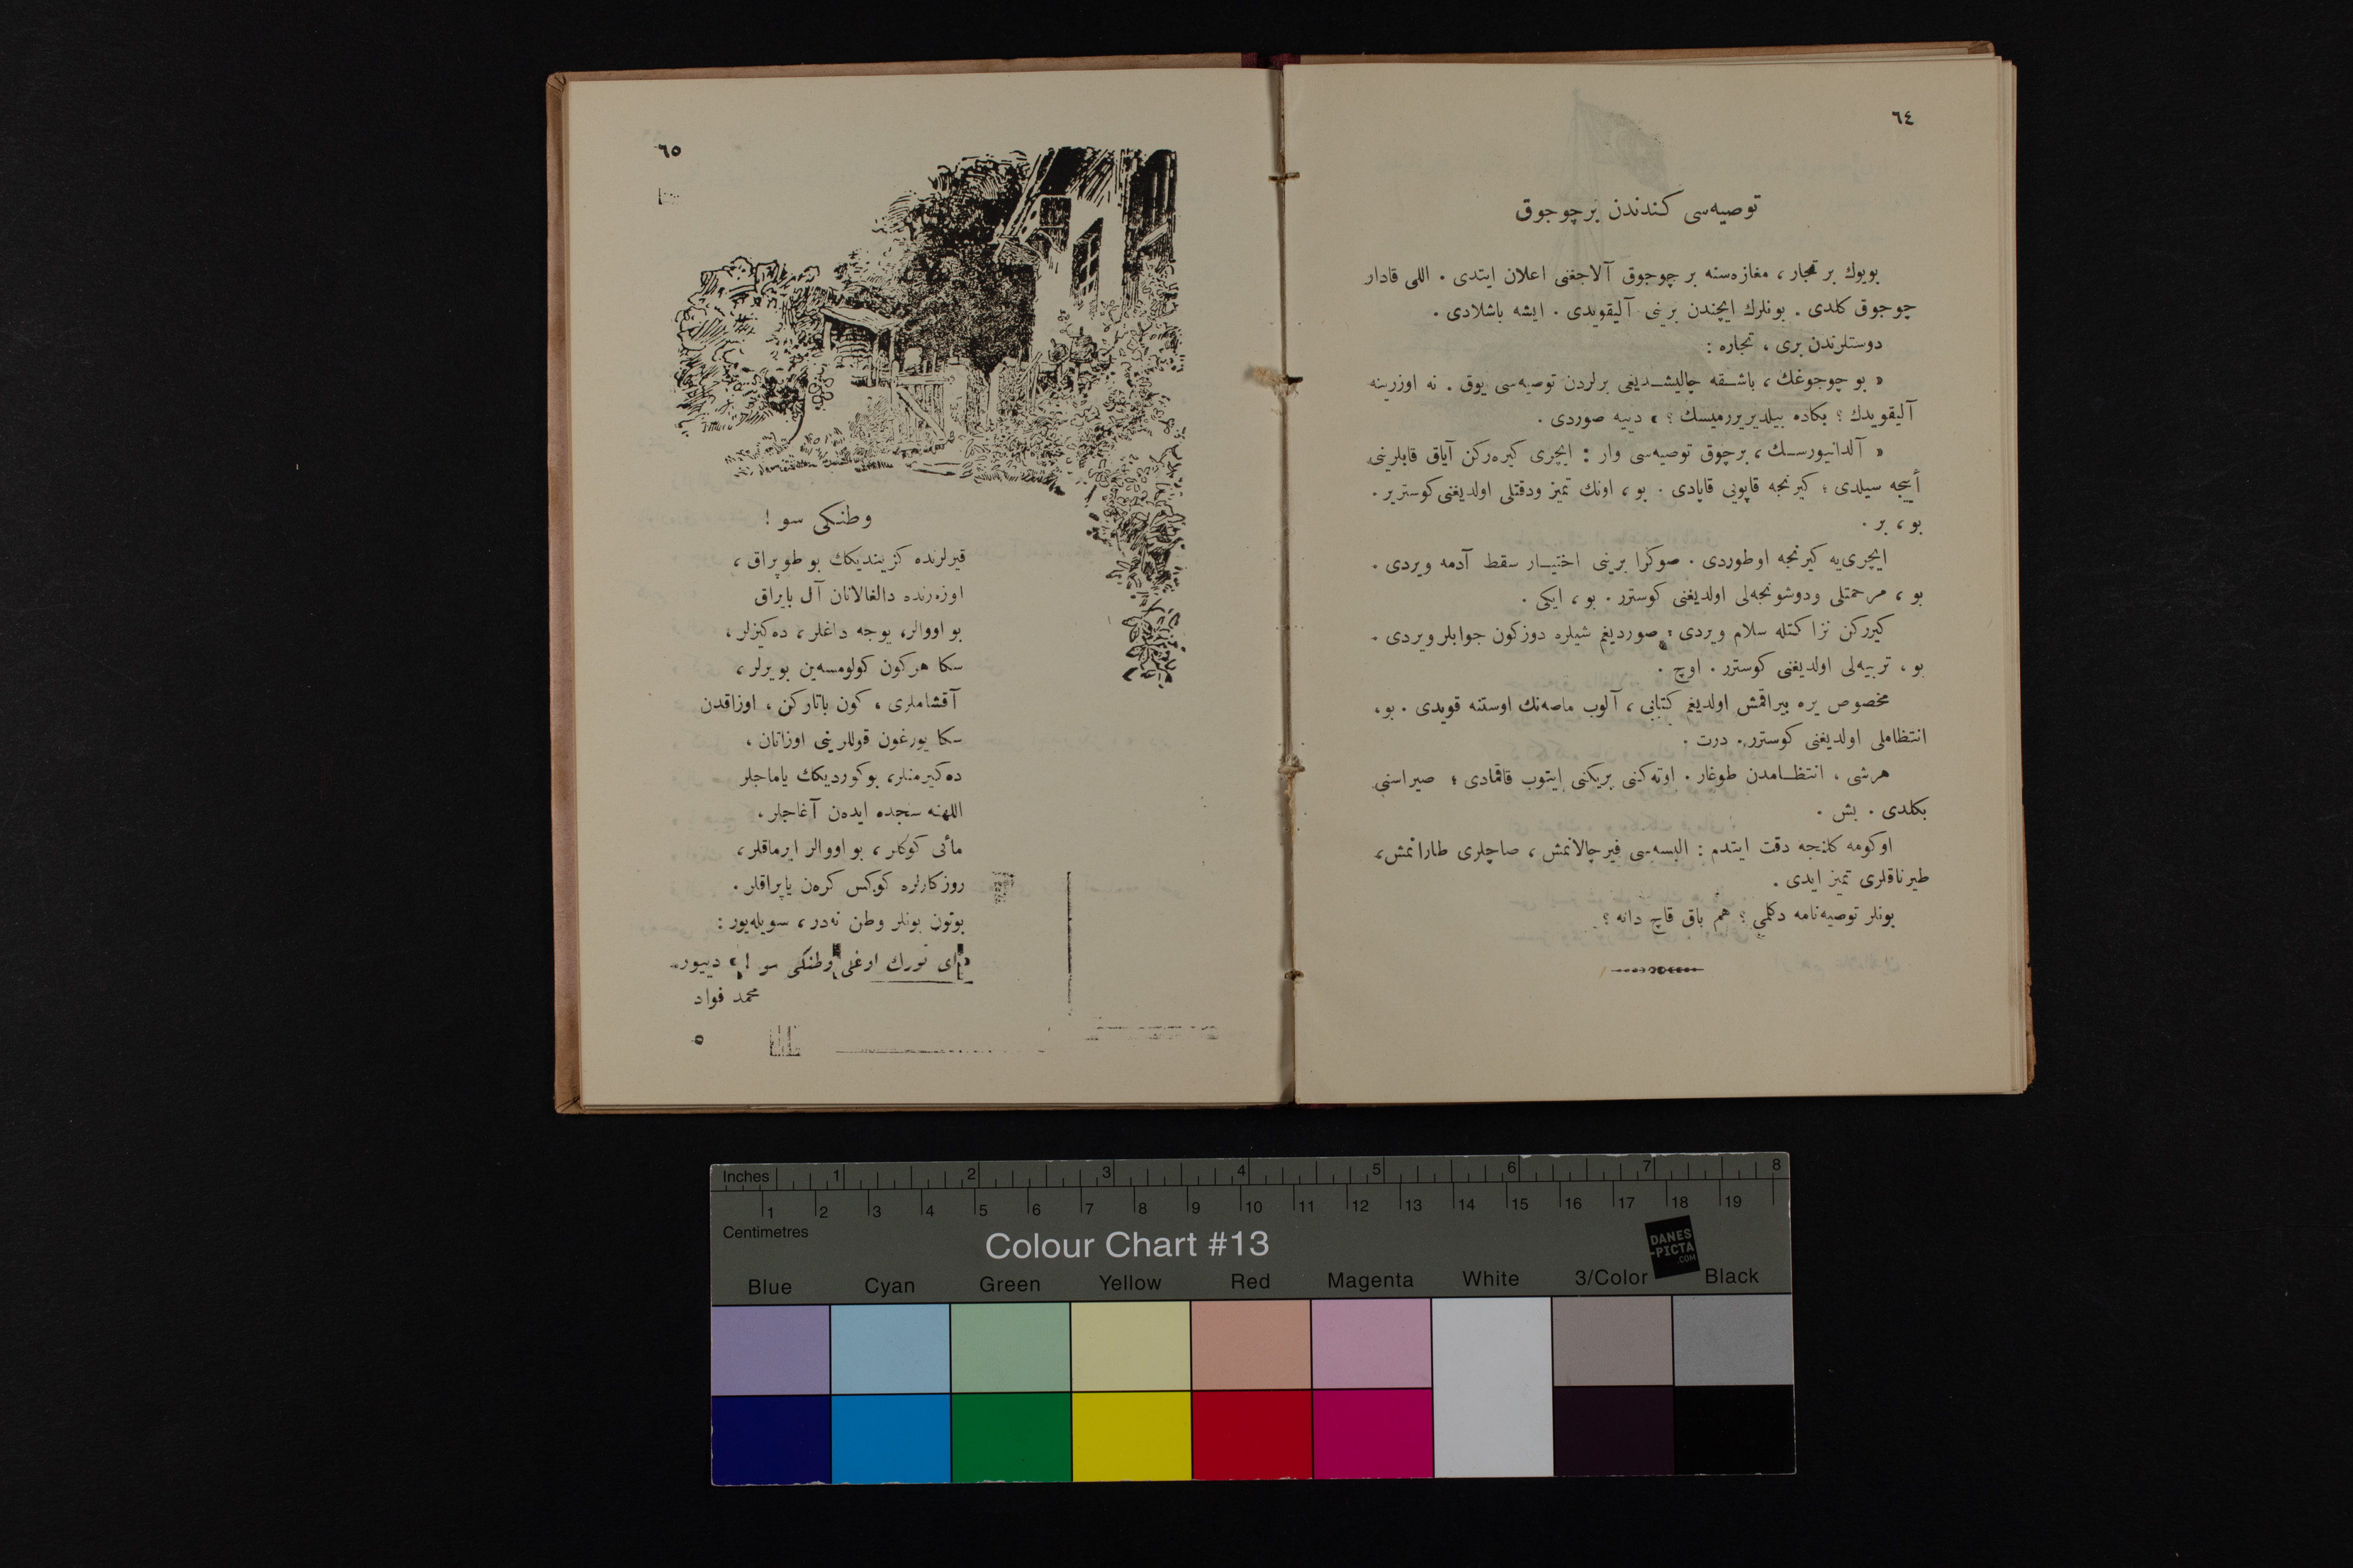 ٦٤
توصیه‌سی کندندن برچوجوق
بویوك بر تجار، مغازه‌سنه بر چوجوق آلاجغنی اعلان ایتدی . اللی قادار
چوجوق کلدی . بونلرك ایچندن برینی آلیقویدی . ایشه باشلادی .
دوستلرندن بری ، تجاره :
« بو چوجوغك ، باشقه چالیشدیغی یرلردن توصیه‌سی یوق . نه اوزرینه
آلیقویدك ؟ بکاده بیلدیریررمیسك ؟ » دییه صوردی .
« آلدانیورسك ، برچوق توصیه‌سی وار : ایچری کیره‌رکن آیاق قابلرینی
أییجه سیلدی ؛ کیرنجه قاپویی قاپادی . بو ، اونك تمیز ودقتلی اولدیغنی کوستریر .
بو ، بر .
ایچری‌یه کیرنجه اوطوردی . صوکرا یرینی اختیار سقط آدمه ویردی .
بو ، مرحمتلی ودوشونجه‌لی اولدیغنی کوسترر . بو ، ایکی .
کیررکن نزاکتله سلام ویردی ؛ صوردیغم شیلره دوزکون جوابلر ویردی .
بو ، تربیه‌لی اولدیغنی کوسترر . اوچ .
مخصوص یره بیراقمش اولدیغم کتابی ، آلوب ماصه‌نك اوستنه قویدی . بو ،
انتظاملی اولدیغنی کوسترر . درت .
هرشی ، انتظامدن طوغار . اوته‌کنی بریکنی ایتوب قاقمادی ؛ صیراسنی
بکلدی . بش .
اوکومه کلنجه دقت ایتدم : البسه‌سی فیرچالانمش ، صاچلری طارانمش ،
طیرناقلری تمیز ایدی .
بونلر توصیه‌نامه دکلمی ؟ هم باق قاچ دانه ؟
٦٥
وطنکی سو !
قیرلرنده کزیندیکك بو طوپراق ،
اوزه‌رنده دالغالانان آل بایراق
بو اووالر، یوجه داغلر ، ده‌کیزلر ،
سکا هرکون کولومسه‌ین بو یرلر ،
آقشاملری ، کون باتارکن ، اوزاقدن
سکا یورغون قوللرینی اوزاتان ،
ده‌کیرمنلر، بو کوردیکك یاماجلر
اللهنه سجده ایده‌ن آغاجلر ،
مائی کوکلر ، بو اووالر ایرماقلر ،
روزکارلره کوکس کره‌ن یاپراقلر .
بوتون بونلر وطن نه‌در ، سویله‌یور :
« ای تورك اوغلی وطنکی سو ! » دییور.
محمد فواد
٥
Inches 1 2 3 4 5 6 7 8
1 2 3 4 5 6 7 8 9 10 11 12 13 14 15 16 17 18 19
Centimetres
Colour Chart #13
DANES
-PICTA
.COM
Blue Cyan Green Yellow Red Magenta White 3/Color Black